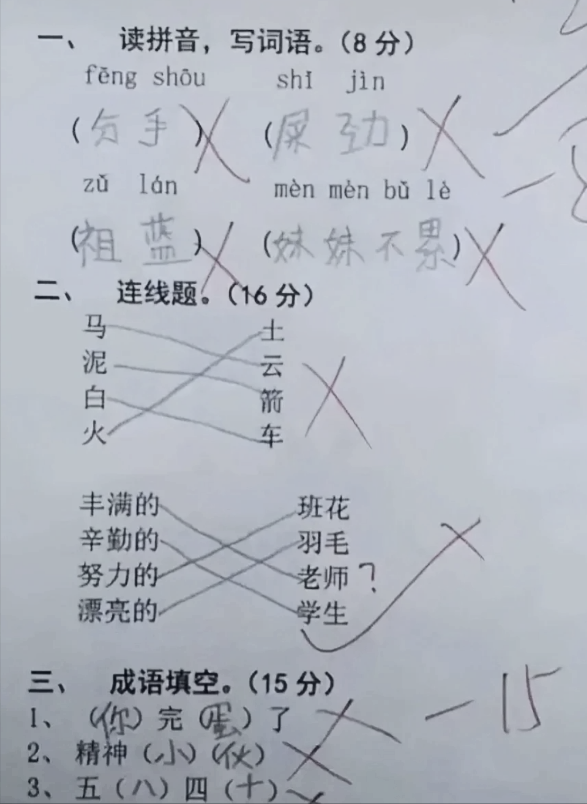 一、 读拼音，写词语。（8分）
fēng shōu shǐ jìn
（分手）（屎劲）
zǔ lán mèn mèn bǔ lè
（祖蓝）（妹妹不累）
二、 连线题。（16分）
马 土
泥 云
白 箭
火 车
丰满的 班花
辛勤的 羽毛
努力的 老师？
漂亮的 学生
三、 成语填空。（15分） -15
1、（你）完（蛋）了
2、精神（小）（伙）
3、五（八）四（十）